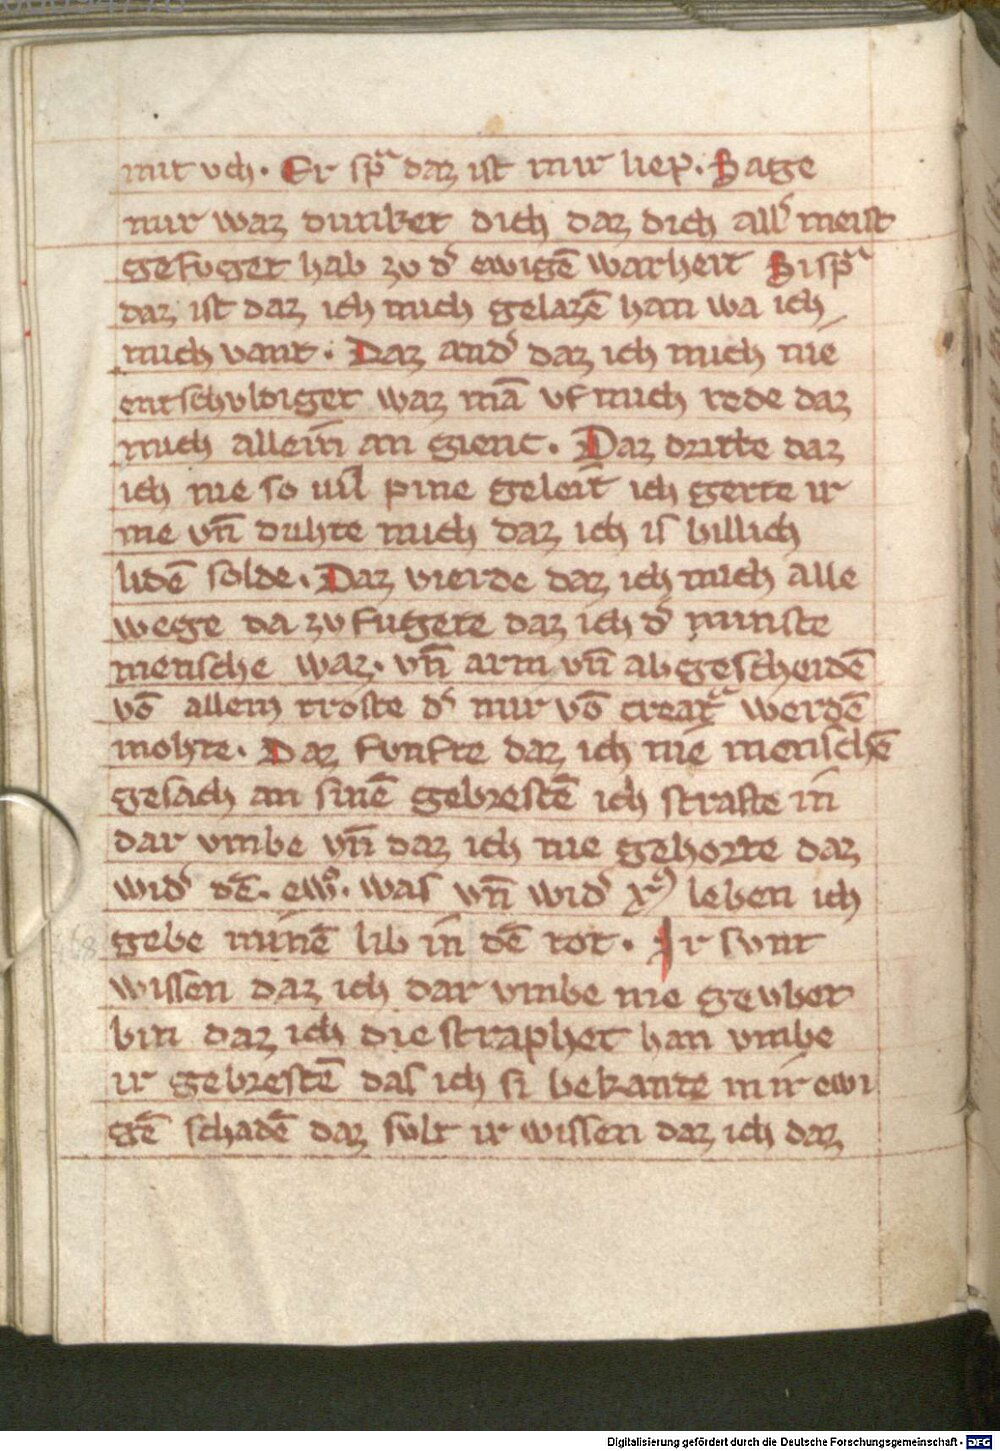 mit vch. Er spᷓ daz ist mir liep. Sage
mir waz dunket dich daz dich all᷑ meist
gefuget hab zv d᷑ ewigē warheit Si spᷓ
daz ist daz ich mich gelazē han wa ich
mich vant. Daz and᷑ daz ich mich nie
entschvldiget waz mā vf mich rede daz
mich allein an gienc. Daz dritte daz
ich nie so uil pine geleit ich gerte ir
me vn̄ duhte mich daz ich is billich
lidē solde. Daz vierde daz ich mich alle
wege da zv fugete daz ich d᷑ minste
mensche waz. vn̄ arm vn̄ abgescheidē
vō allem troste d᷑ mir vō creatᷓ werdē
mohte. Daz funfte daz ich nie menschē
gesach an sinē gebrestē ich strafte in
dar vmbe vn̄ daz ich nie gehorte daz
wid᷑ dē. ewº. was vn̄ wid᷑ xᷓ leben ich
gebe minē lib in dē tot. Ir svnt
wissen daz ich dar vmbe nie gevbet
bin daz ich die straphet han vmbe
ir gebrestē das ich si bekante in ir ewi
gē schadē daz svlt ir wissen daz ich daz
Digitalisierung gefördert durch die Deutsche Forschungsgemeinschaft - DFG